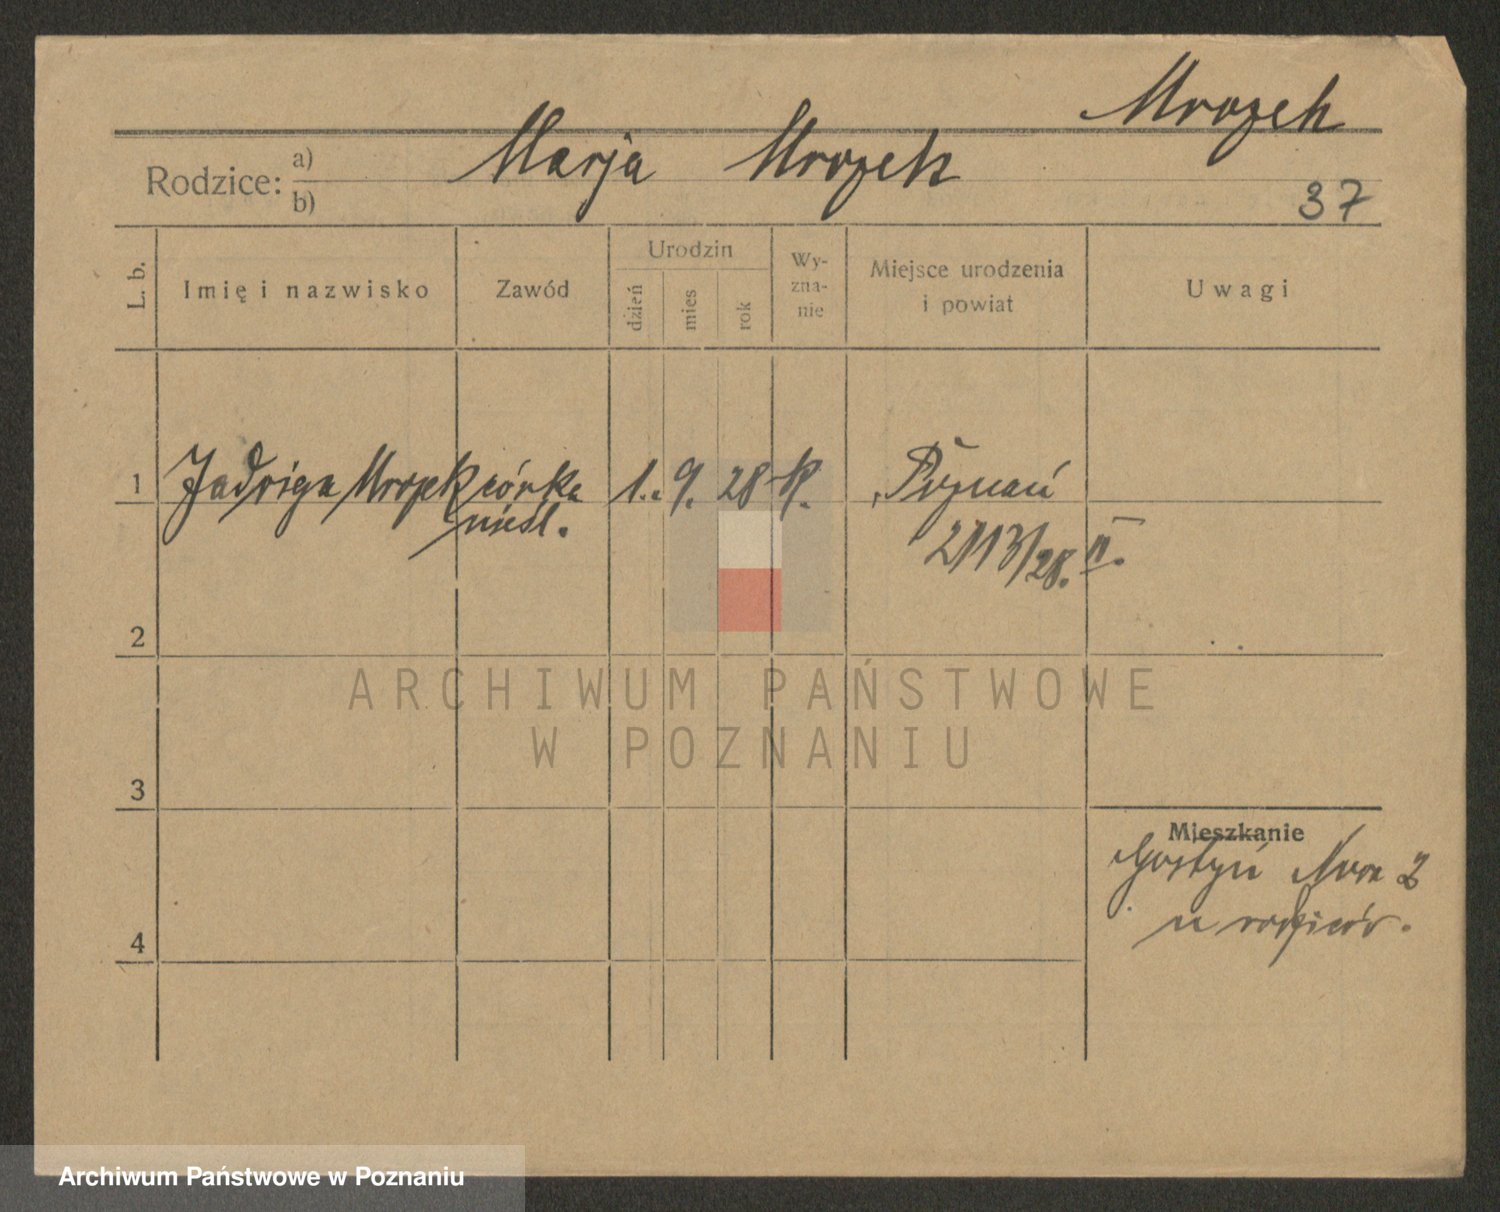 Mrozek
Rodzice: a) Marja Mrozek
b)
37
L. b.
Imię i nazwisko
Zawód
Urodzin
dzień
mies
rok
Wy-
zna-
nie
Miejsce urodzenia
i powiat
Uwagi
1 Jadwiga Mrozek córka 1. 9. 28 K. Poznań
nieśl. 2113/28. II.
2
ARCHIWUM PAŃSTWOWE
W POZNANIU
3
Mieszkanie
Gostyń 2
u rodziców.
4
Archiwum Państwowe w Poznaniu